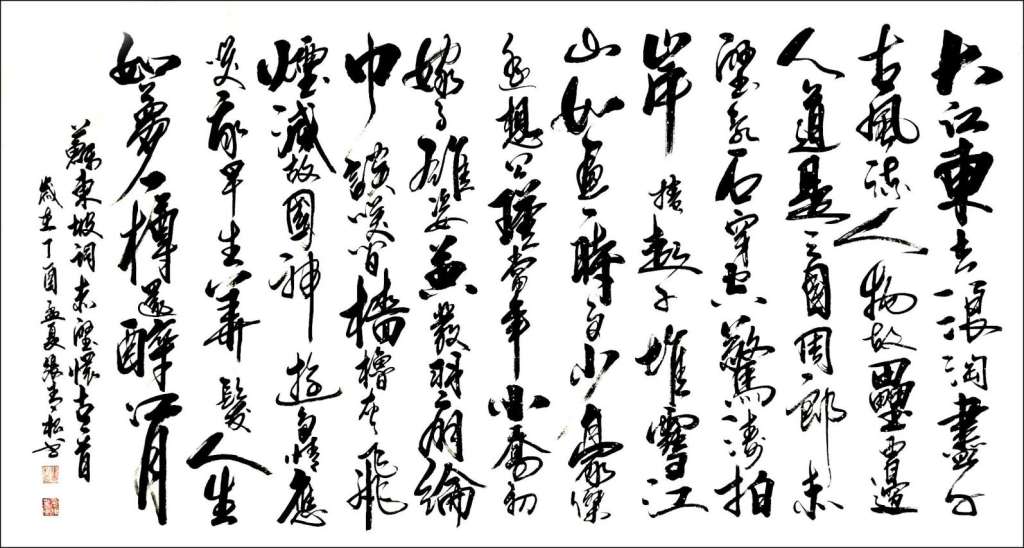 大江東去浪淘盡千
古風流人物故壘西邊
人道是三國周郎赤
壁亂石穿空驚濤拍
岸捲起千堆雪江
山如畫一時多少豪傑
遙想公瑾當年小喬初
嫁了雄姿英發羽扇綸
巾談笑間檣櫓灰飛
煙滅故國神遊多情應
笑我早生華髮人生
如夢一樽還酹江月
蘇東坡詞赤壁懷古一首
歲在丁酉孟夏張青松書